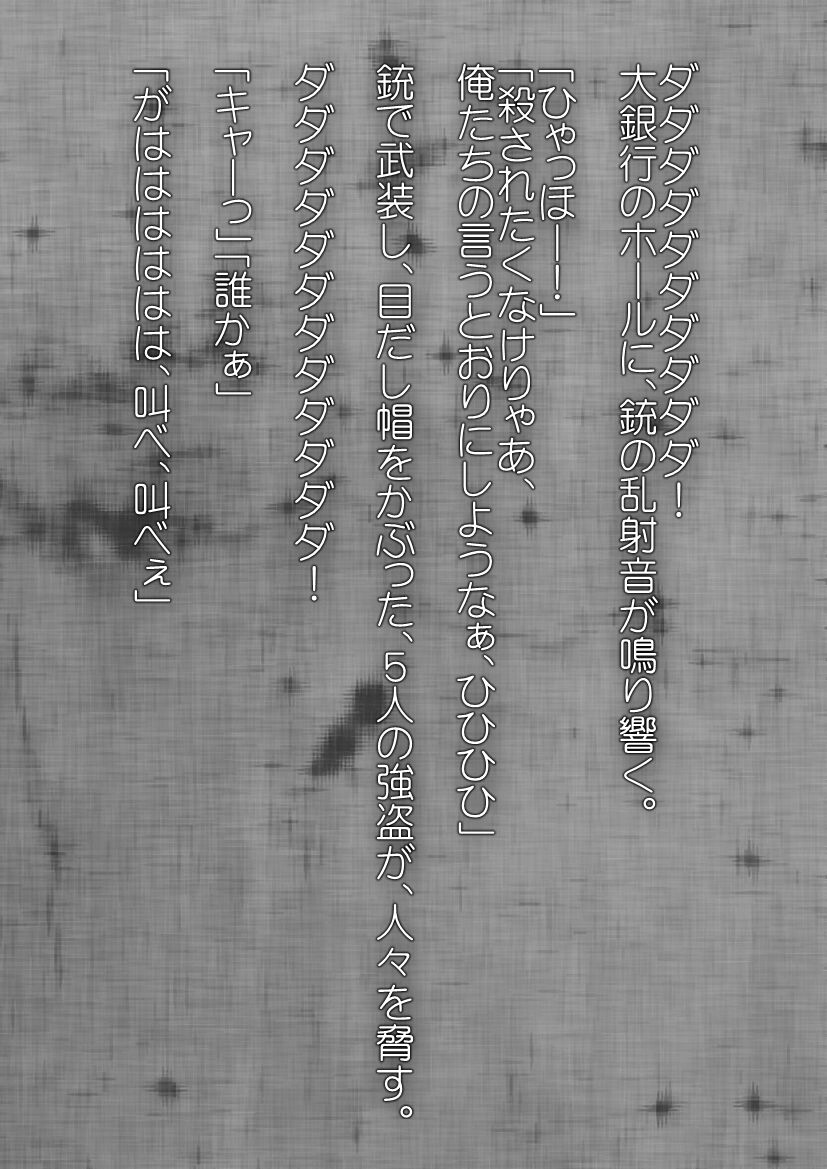 ダダダダダダダダダダ！
大銀行のホールに、銃の乱射音が鳴り響く。
「ひゃっほー！」
「殺されたくなけりゃあ、
俺たちの言うとおりにしようなぁ、ひひひひ」
銃で武装し、目だし帽をかぶった、５人の強盗が、人々を脅す。
ダダダダダダダダダダダダ！
「キャーっ」「誰かぁ」
「がはははははは、叫べ、叫べぇ」